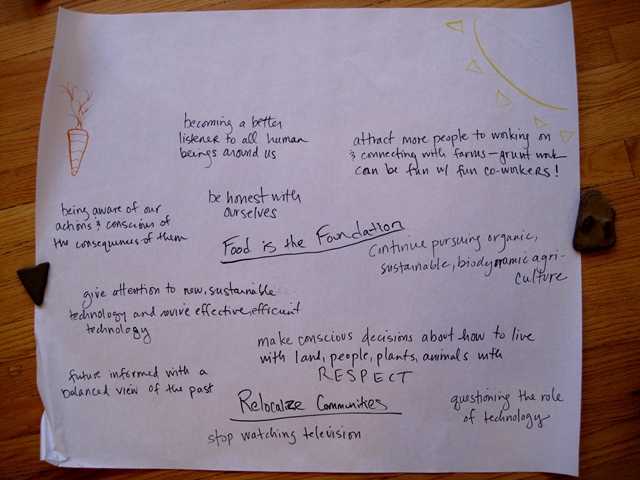 becoming a better
listener to all human
beings around us
attract more people to working on
& connecting with farms – grunt work
can be fun w/ fun co-workers!
being aware of our
actions & conscious of
the consequences of them
be honest with
ourselves
Food is the Foundation
Continue pursuing organic,
sustainable, biodynamic agri-
culture
give attention to new, sustainable
technology and revive effective, efficient
technology
make conscious decisions about how to live
with land, people, plants, animals with
RESPECT
future informed with a
balanced view of the past
Relocalize Communities
questioning the role
of technology
stop watching television